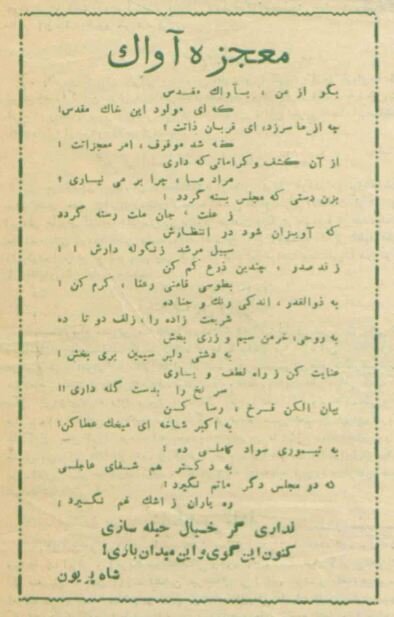 معجزه آواك
بگو از من ، بآواك مقدس
که ای مولود این خاك مقدس!
چه از ما سرزد، ای قربان ذاتت ؛
که شد موقوف ، امر معجزاتت ؛
از آن کشف و کراماتی که داری
مراد ما ، چرا بر می نیاری ؟
بزن دستی که مجلس بسته گردد ؛
ز علت ، جان ملت رسته گردد
که آویزان شود در انتظارش
سبیل مرشد زنگوله دارش ! !
ز ند صدو ، چندین ذرع کم کن
بطوسی قامتی رعنا ، کرم کن !
به ذوالقدر ، اندکی رنك و جنا ده
شریعت زاده را ، زلف دو تا ده
به روحی، خرمن سیم و زری بخش
به دشتی دلبر سیمین بری بخش !
عنایت کن ز راه لطف و یاری
سر نخ را بدست گله داری !!
بیان الکن فرخ ، رسا کن
به اکبر شاخه ای میخك عطا کن!
به تیموری سواد کاملی ده ؛
به دکتر هم شفای عاجلی
که دو مجلس دگر ماتم نگیرد ؛
وه یاران ز اشك نم نگیرد ؛
نداری گر خیال حیله سازی
کنون این گوی و این میدان بازی!
شاه پریون